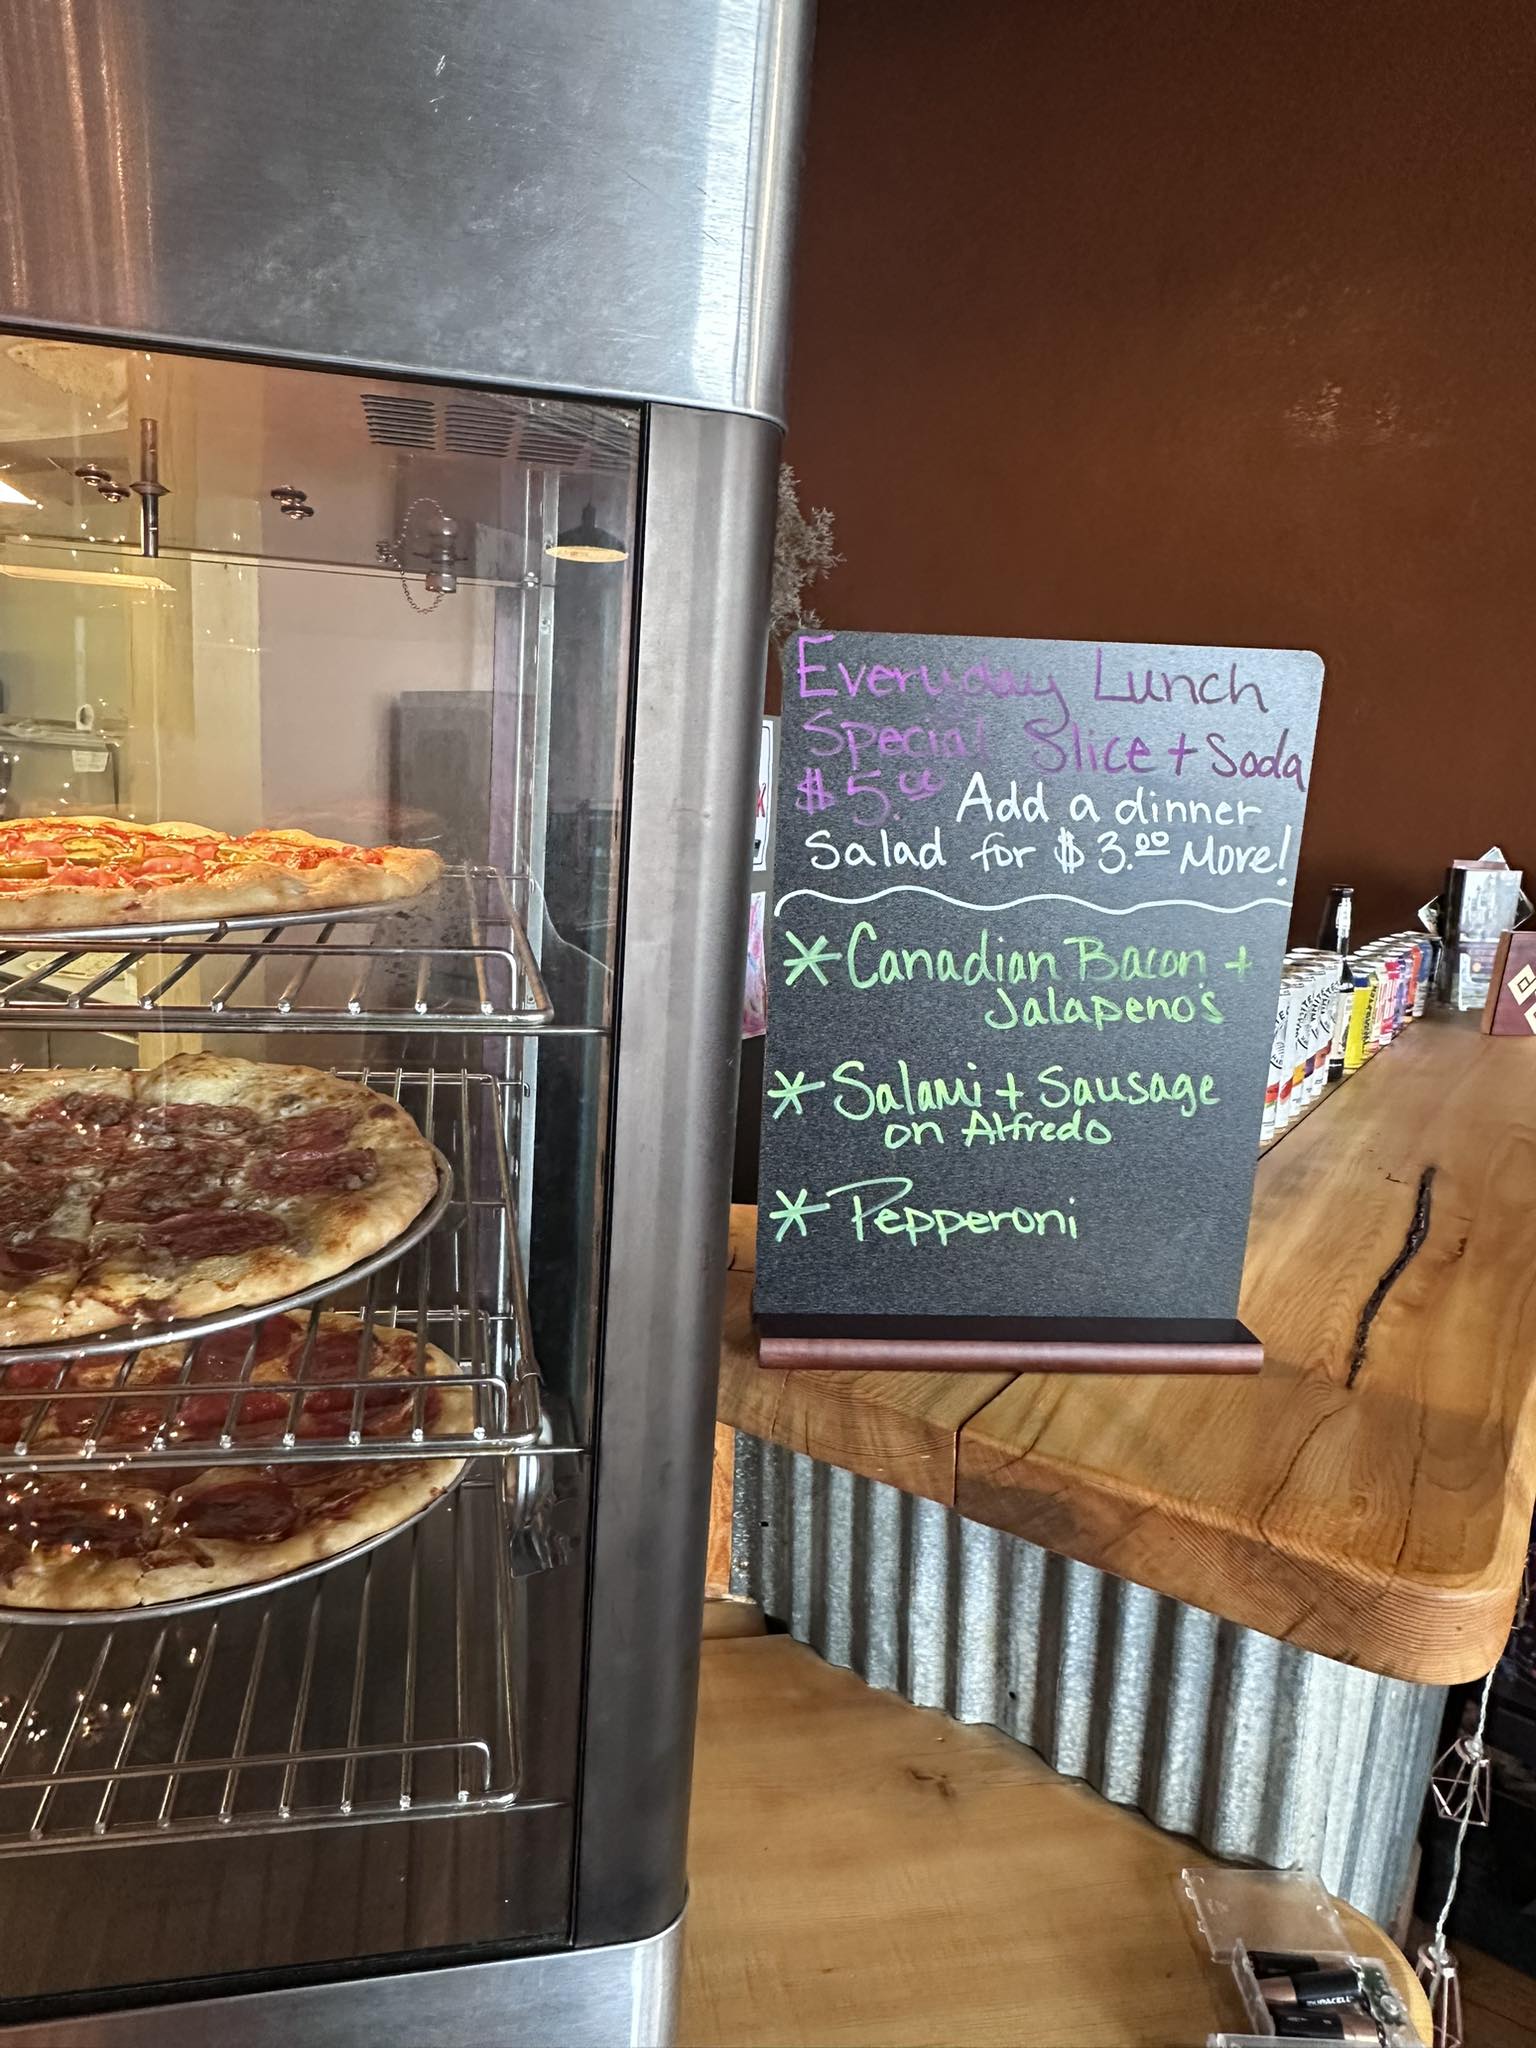 Everyday Lunch
Special Slice + Soda
$5.00 Add a dinner
Salad for $3.00 More!
* Canadian Bacon +
Jalapeno's
* Salami + Sausage
on Alfredo
* Pepperoni
DURACELL